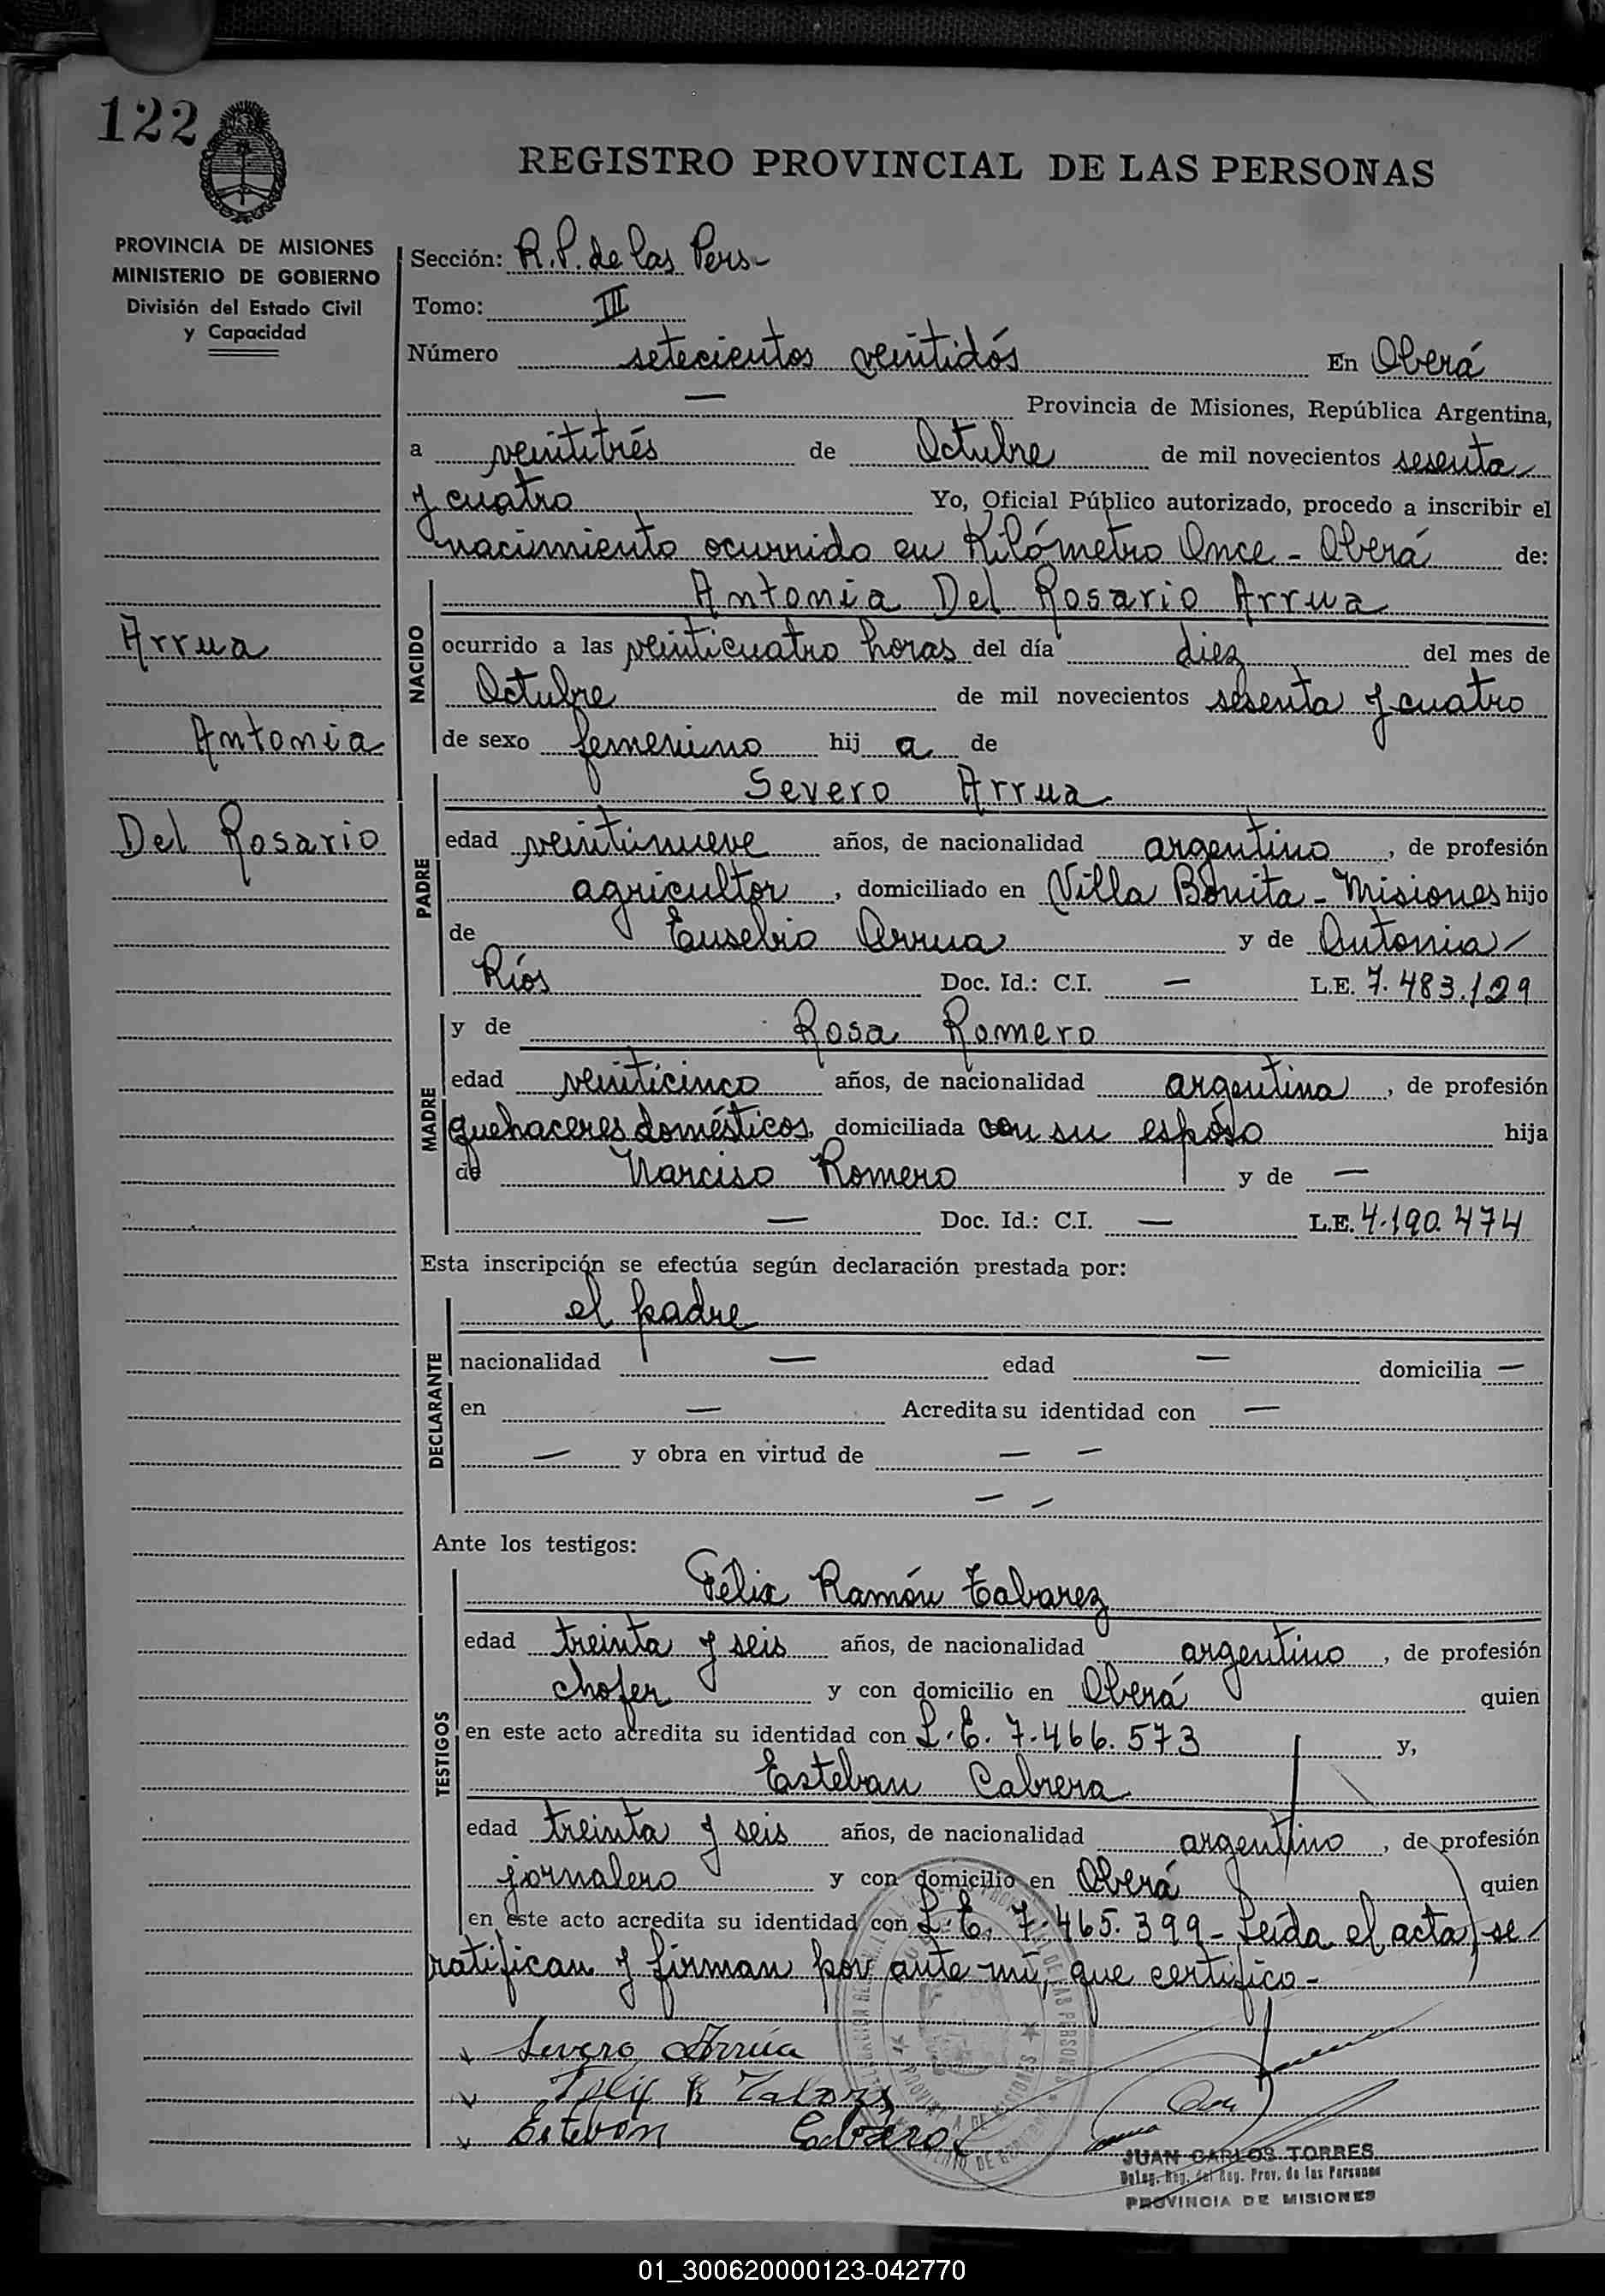 122
REGISTRO PROVINCIAL DE LAS PERSONAS
PROVINCIA DE MISIONES
MINISTERIO DE GOBIERNO
División del Estado Civil
y Capacidad
Sección: R.P. de las Pers-
Tomo: III
Número setecientos veintidós En Oberá
— Provincia de Misiones, República Argentina,
a veintitrés de Octubre de mil novecientos sesenta
y cuatro Yo, Oficial Público autorizado, procedo a inscribir el
nacimiento ocurrido en Kilómetro Once - Oberá de:
NACIDO
Antonia Del Rosario Arrua
Arrua
ocurrido a las veinticuatro horas del día diez del mes de
Octubre de mil novecientos sesenta y cuatro
Antonia
de sexo femenino hij a de
PADRE
Severo Arrua
Del Rosario
edad veintinueve años, de nacionalidad argentino, de profesión
agricultor, domiciliado en Villa Bonita - Misiones hijo
de Eusebio Arrua y de Antonia
Ríos Doc. Id.: C.I. — L.E. 7.483.129
MADRE
y de Rosa Romero
edad veinticinco años, de nacionalidad argentina, de profesión
quehaceres domésticos, domiciliada con su esposo hija
de Narciso Romero y de —
— Doc. Id.: C.I. — L.E. 4.190.474
Esta inscripción se efectúa según declaración prestada por:
DECLARANTE
el padre
nacionalidad — edad — domicilia —
en — Acredita su identidad con —
— y obra en virtud de — —
— —
Ante los testigos:
TESTIGOS
Félix Ramón Tabarez
edad treinta y seis años, de nacionalidad argentino, de profesión
chofer y con domicilio en Oberá quien
en este acto acredita su identidad con L.E. 7.466.573 y,
Esteban Cabrera
edad treinta y seis años, de nacionalidad argentino, de profesión
jornalero y con domicilio en Oberá quien
en este acto acredita su identidad con L.E. 7.465.399 - Leída el acta, se
ratifican y firman por ante mí, que certifico -
Severo Arrúa
Felix R Tabarez
Esteban Cabrera
JUAN CARLOS TORRES
Deleg. Reg. del Reg. Prov. de las Personas
PROVINCIA DE MISIONES
01_300620000123-042770